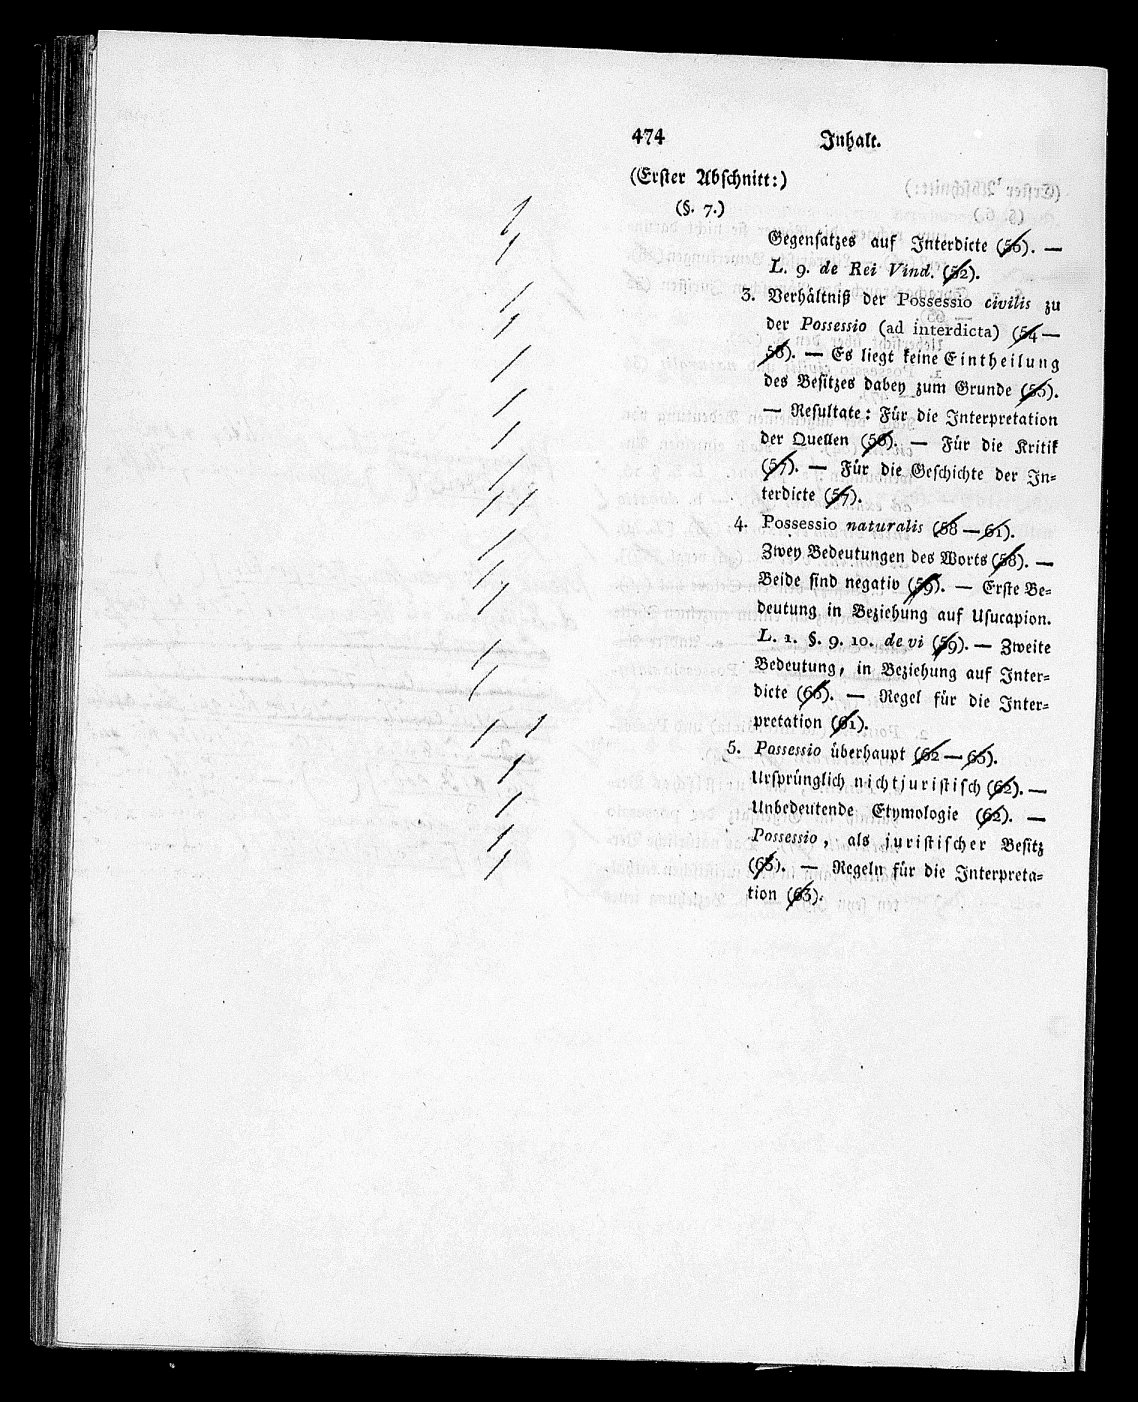 474 Inhalt.
(Erster Abschnitt:)
(§. 7.)
Gegensatzes auf Interdicte (56). —
L. 9. de Rei Vind. (52).
3. Verhältniß der Possessio civilis zu
der Possessio (ad interdicta) (54 —
58). — Es liegt keine Eintheilung
des Besitzes dabey zum Grunde (55).
— Resultate: Für die Interpretation
der Quellen (56). — Für die Kritik
(57). — Für die Geschichte der In=
terdicte (57).
4. Possessio naturalis (58 — 61).
Zwey Bedeutungen des Worts (58). —
Beide sind negativ (59). — Erste Be=
deutung in Beziehung auf Usucapion.
L. 1. §. 9. 10. de vi (59). — Zweite
Bedeutung, in Beziehung auf Inter=
dicte (60). — Regel für die Inter=
pretation (61).
5. Possessio überhaupt (62 — 63).
Ursprünglich nichtjuristisch (62). —
Unbedeutende Etymologie (62). —
Possessio, als juristischer Besitz
(63). — Regeln für die Interpreta=
tion (63).